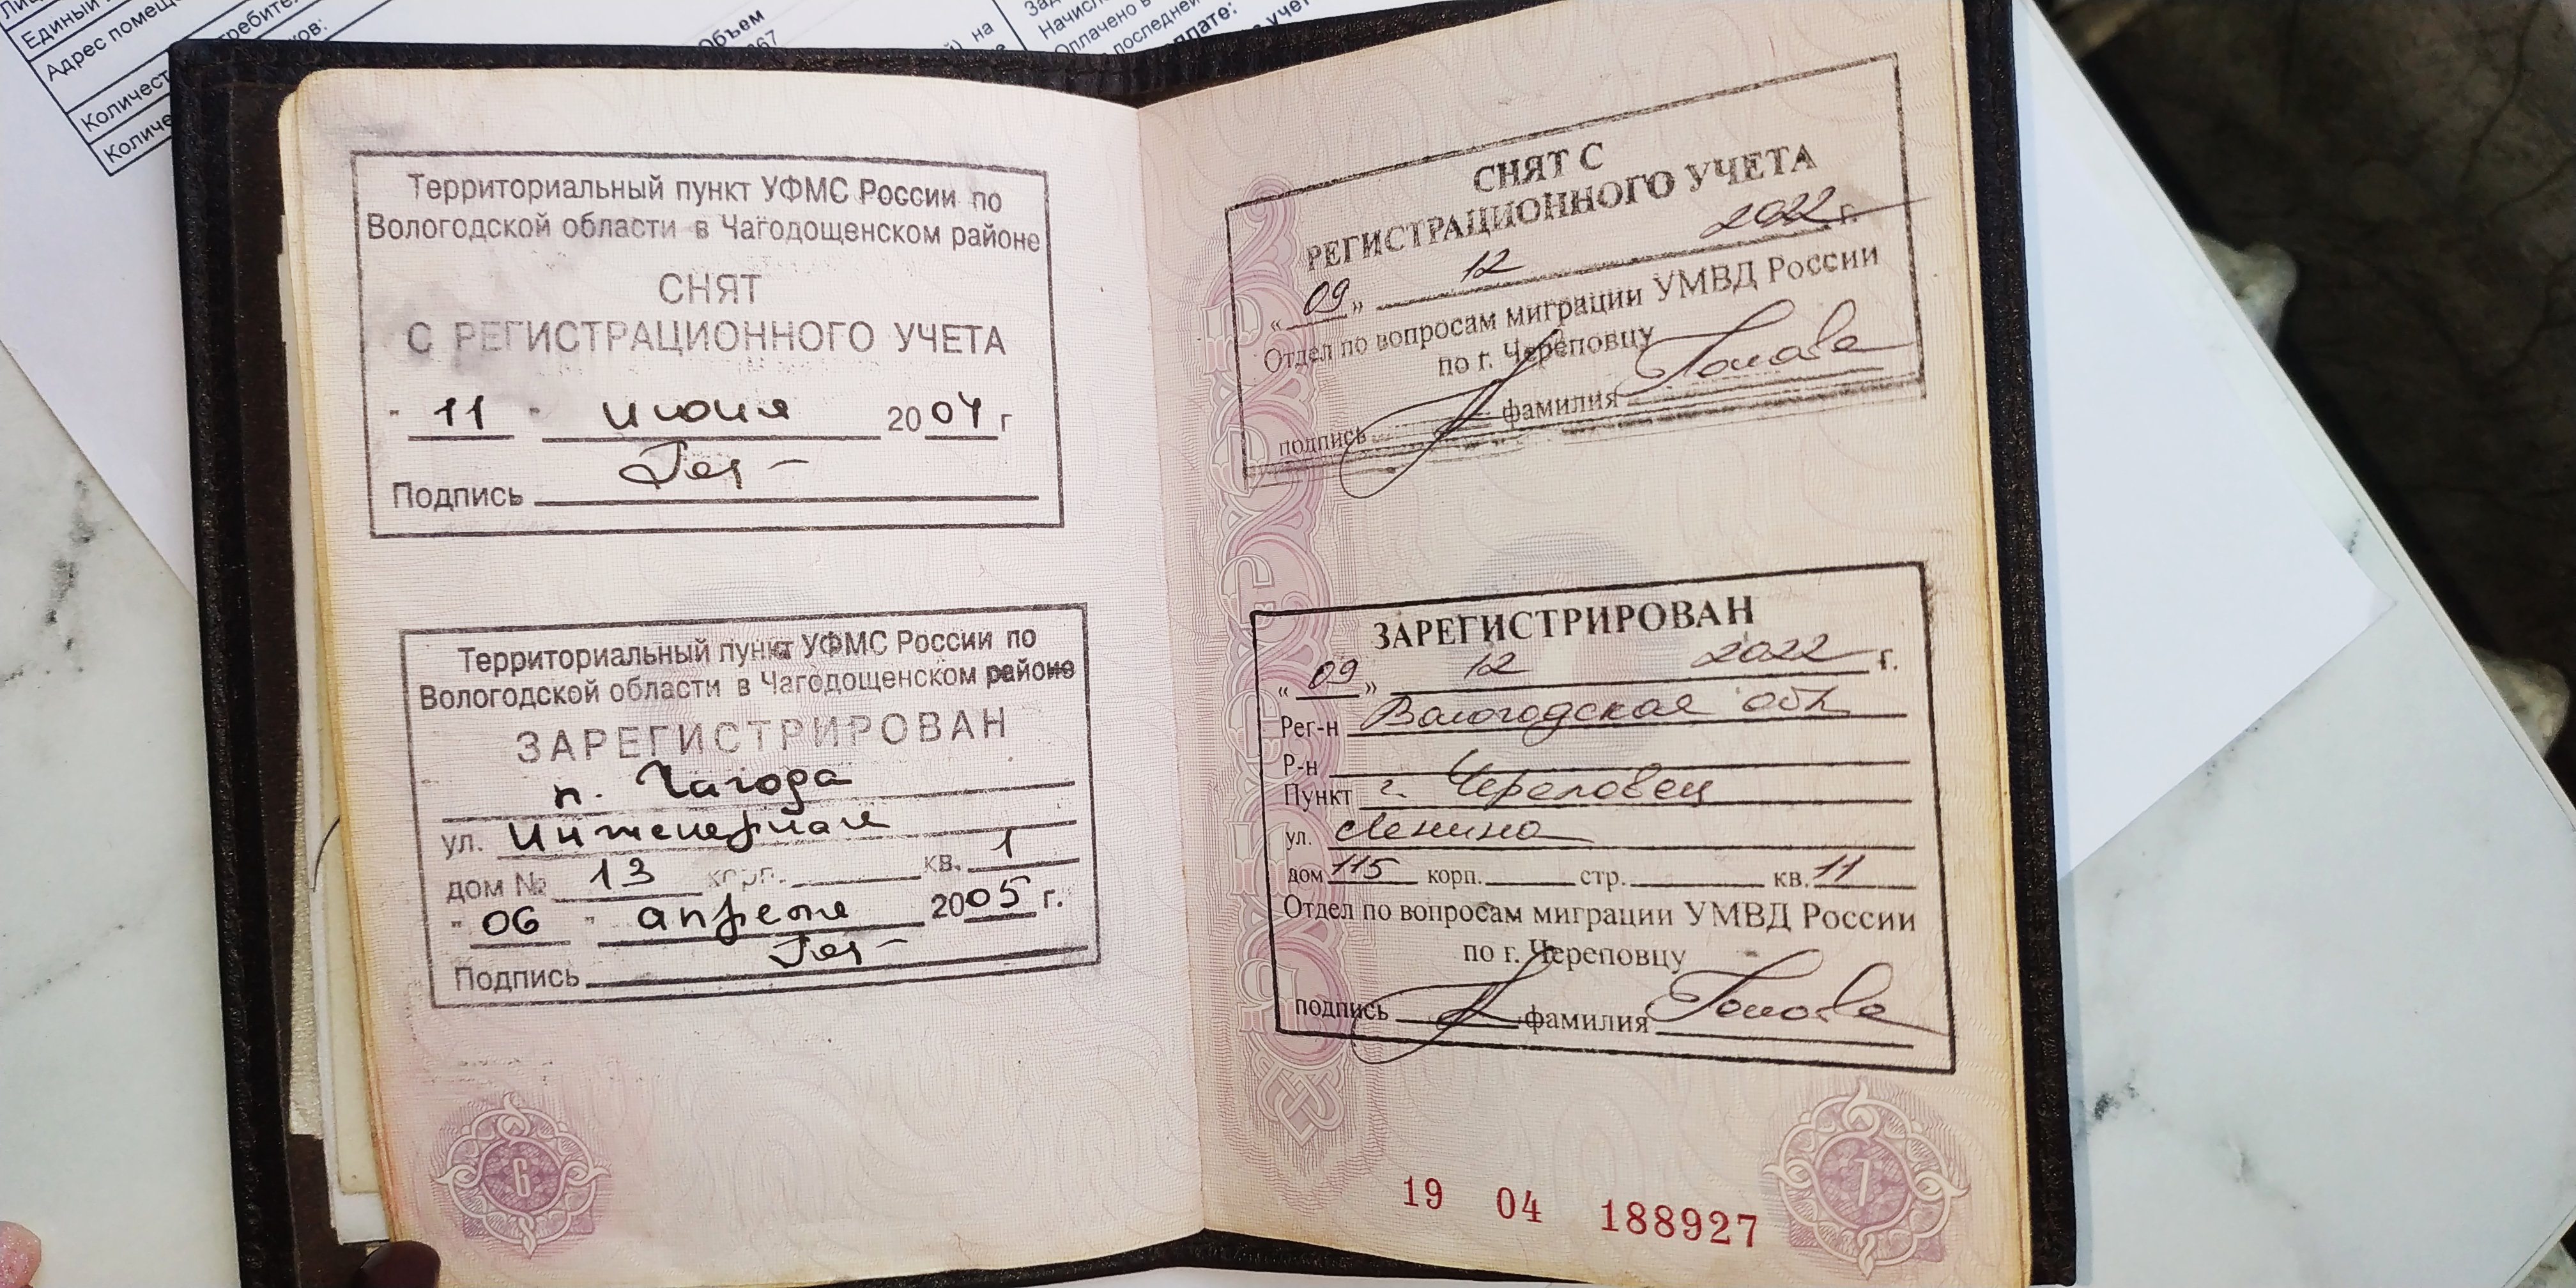 Единый
Адрес помеще
Количест
Количе
требител
ков:
Объем
967
на
Начисле
Оплачено в
последней
плате:
учет
Территориальный пункт УФМС России по
Вологодской области в Чагодощенском районе
СНЯТ
С РЕГИСТРАЦИОННОГО УЧЕТА
" 11 " июня 2004 г
Подпись
Территориальный пункт УФМС России по
Вологодской области в Чагодощенском районе
ЗАРЕГИСТРИРОВАН
п. Чагода
ул. Инженерная
дом № 13 корп. кв. 1
" 06 " апреля 2005 г.
Подпись
6
СНЯТ С
РЕГИСТРАЦИОННОГО УЧЕТА
« 09 » 12 2022 г.
Отдел по вопросам миграции УМВД России
по г. Череповцу
подпись фамилия
ЗАРЕГИСТРИРОВАН
« 09 » 12 2022 г.
Рег-н Вологодская обл
Р-н
Пункт г. Череповец
ул. Ленина
дом 115 корп. стр. кв. 11
Отдел по вопросам миграции УМВД России
по г. Череповцу
подпись фамилия
19 04 188927
7